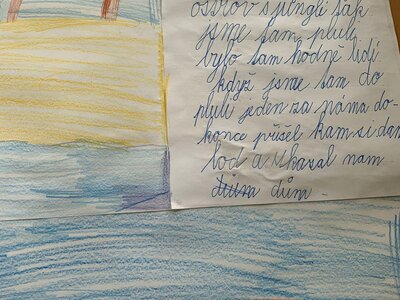 ostrov s pingli tak
jsme tam pluli
bylo tam hodně lidí
když jsme tam do
pluli jeden za náma do-
konce přišel kam si dam
loď a ukasal nam
důra dům.